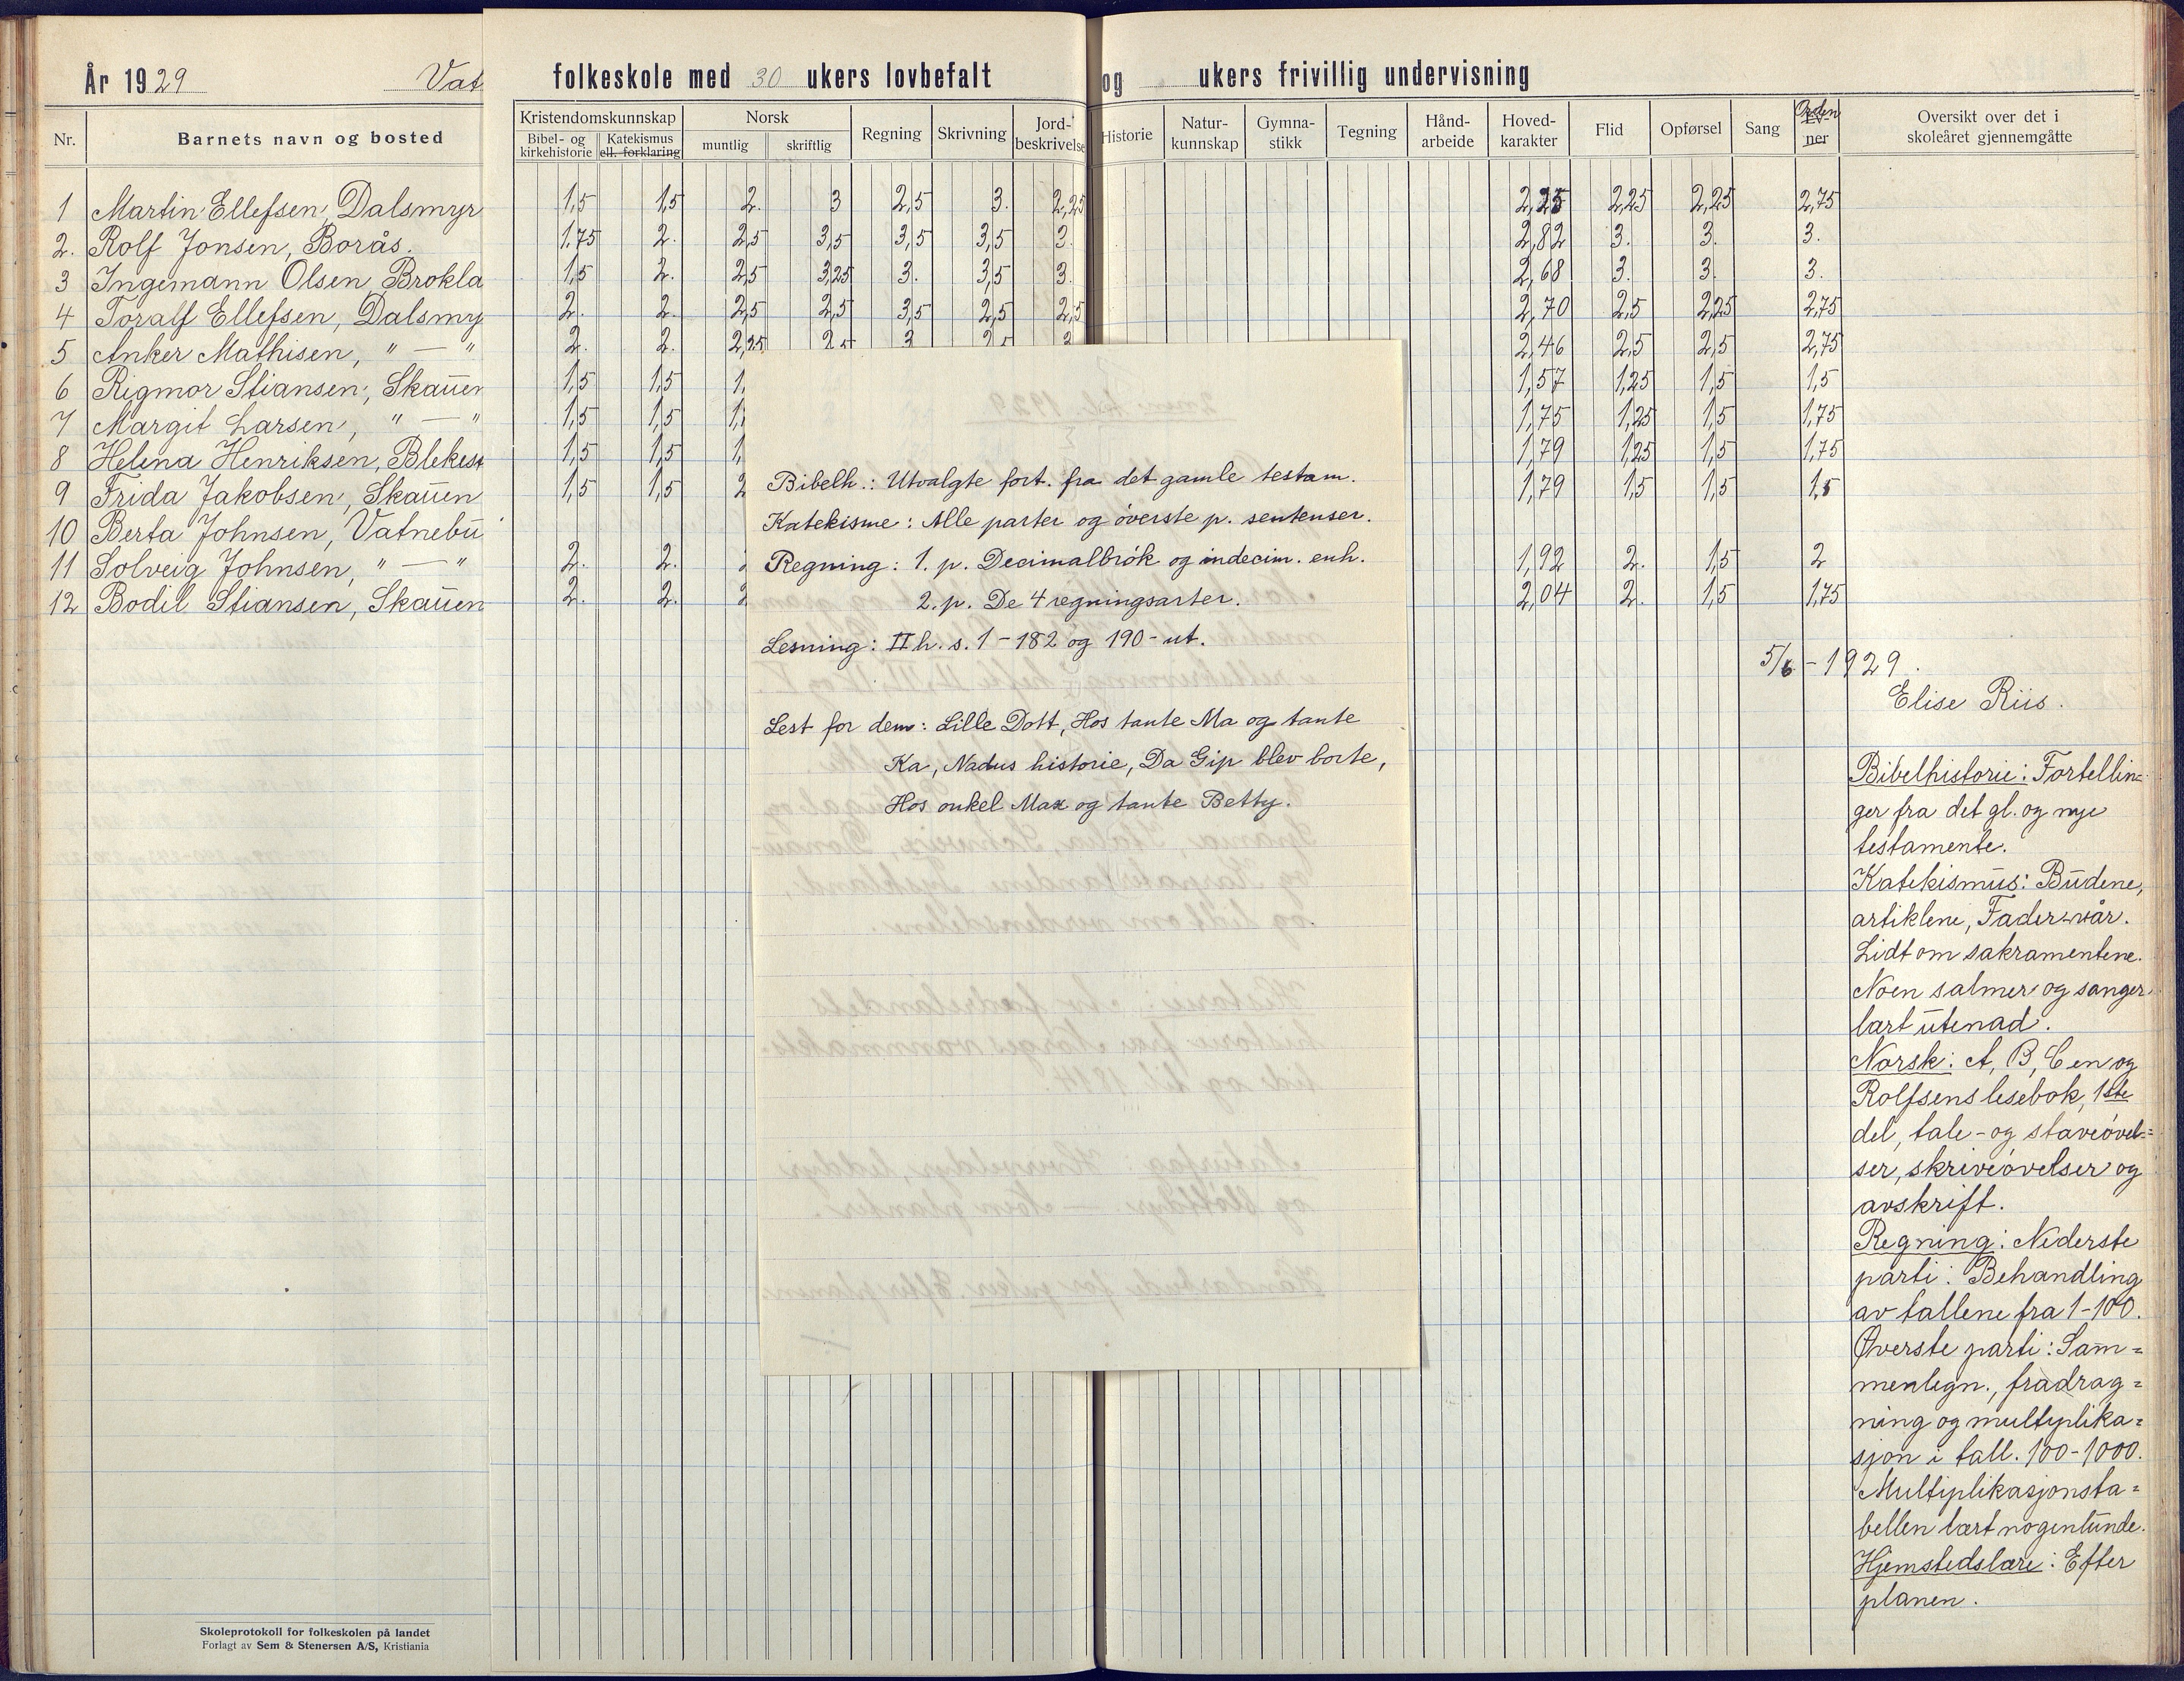 År 1929 Vat
folkeskole med 30 ukers lovbefalt og ukers frivillig undervisning
Nr. Barnets navn og bosted
Kristendomskunnskap Norsk Regning Skrivning Jord-beskrivelse Historie Natur-kunnskap Gymna-stikk Tegning Hånd-arbeide Hoved-karakter Flid Opførsel Sang Orden Ev-ner Oversikt over det i skoleåret gjennemgåtte
Bibel- og kirkehistorie Katekismus ell. forklaring muntlig skriftlig
1 Martin Ellefsen, Dalsmyr 1,5 1,5 2. 3 2,5 3. 2,25 2,25 2,25 2,25 2,75
2. Rolf Jonsen, Borås. 1,75 2. 2,5 3,5 3,5 3,5 3. 2,82 3. 3. 3.
3 Ingemann Olsen, Brokla 1,5 2. 2,5 3,25 3. 3,5 3. 2,68 3. 3. 3.
4 Toralf Ellefsen, Dalsmy 2. 2. 2,5 2,5 3,5 2,5 2,5 2,70 2,5 2,25 2,75
5 Anker Mathisen, " — " 2. 2. 2,25 2,5 3 2,5 3 2,46 2,5 2,5 2,75
6 Rigmor Stiansen, Skauen 1,5 1,5 1, 1,57 1,25 1,5 1,5
7 Margit Larsen, " — " 1,5 1,5 1, 1,75 1,25 1,5 1,75
8 Helena Henriksen, Blekest 1,5 1,5 1, 1,79 1,25 1,5 1,75
9 Frida Jakobsen, Skauen 1,5 1,5 2 1,79 1,5 1,5 1,5
10 Berta Johnsen, Vatnebu
11 Solveig Johnsen, " — " 2. 2. 1,92 2. 1,5 2
12 Bodil Stiansen, Skauen 2. 2. 2 2,04 2. 1,5 1,75
Bibelh.: Utvalgte fort. fra det gamle testam.
Katekisme: Alle parter og överste p. sentenser.
Regning: 1. p. Decimalbrök og indecim. enh.
2. p. De 4 regningsarter.
Lesning: II h. s. 1 - 182 og 190 - ut.
Lest for dem: Lille Dott, Hos tante Ma og tante
Ka, Nadus historie, Da Gip blev borte,
Hos onkel Max og tante Betty.
5/6 - 1929.
Elise Riis.
Bibelhistorie: Fortellin=
ger fra det gl. og nye
testamente.
Katekismus: Budene,
artiklene, Fader-vår.
Lidt om sakramentene.
Noen salmer og sanger
lært utenad.
Norsk: A, B, C en og
Rolfsens lesebok, 1ste
del, tale- og staveövel=
ser, skriveövelser og
avskrift.
Regning: Nederste
parti: Behandling
av tallene fra 1-100.
Øverste parti: Sam=
menlegn., fradrag=
ning og multiplika=
sjon i tall. 100-1000.
Multiplikasjonsta=
bellen lært nogenlunde.
Hjemstedslære: Efter
planen.
Skoleprotokoll for folkeskolen på landet
Forlagt av Sem & Stenersen A/S, Kristiania